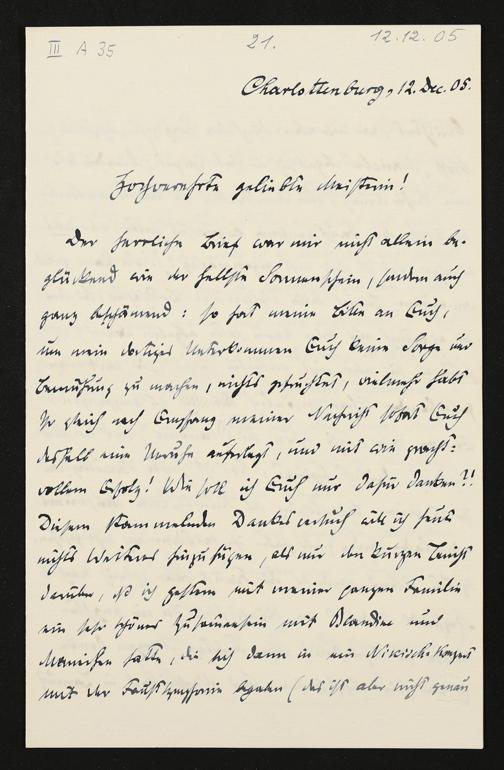 III A 35
21.
12.12.05
Charlottenburg, 12. Dec. 05.
Hochverehrte geliebte Meisterin!
Der herrliche Brief war mir nicht allein be-
glückend wie der hellste Sonnenschein, sondern auch
ganz beschämend: so hat meine Bitte an Euch,
um mein dortiges Unterkommen Euch keine Sorge und
Bemühung zu machen, nichts gefruchtet, vielmehr habt
Ihr gleich nach Empfang meiner Nachricht sofort Euch
deshalb eine Unruhe auferlegt, und mit wie pracht-
vollem Erfolg! Wie soll ich Euch nur dafür danken?!
Diesem stammelnden Dankesversuch will ich heut
nichts Weiteres hinzufügen, als nur den kurzen Bericht
darüber, daß ich gestern mit meiner ganzen Familie
ein sehr schönes Zusammensein mit Blandine und
Manichen hatte, die sich dann in ein Nikisch-Konzert
mit der Faustsymphonie begaben (das ist aber nicht genau